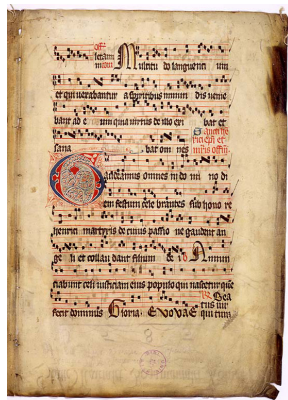 Multitudo languenti um
et qui verabantur a spiritibus immun dis venie
bant ad e um quia virtus de illo exi bat et
sana bat om nes
Gaudeamus omnes in do mi no di
em festum cele brantes sub hono re
henrici martyris de cuius passio ne gaudent an
ge li et collau dant filium de i
ciabunt celi iusticiam eius populo qui nascetur que
fecit dominus Gloria Evovae qui tim